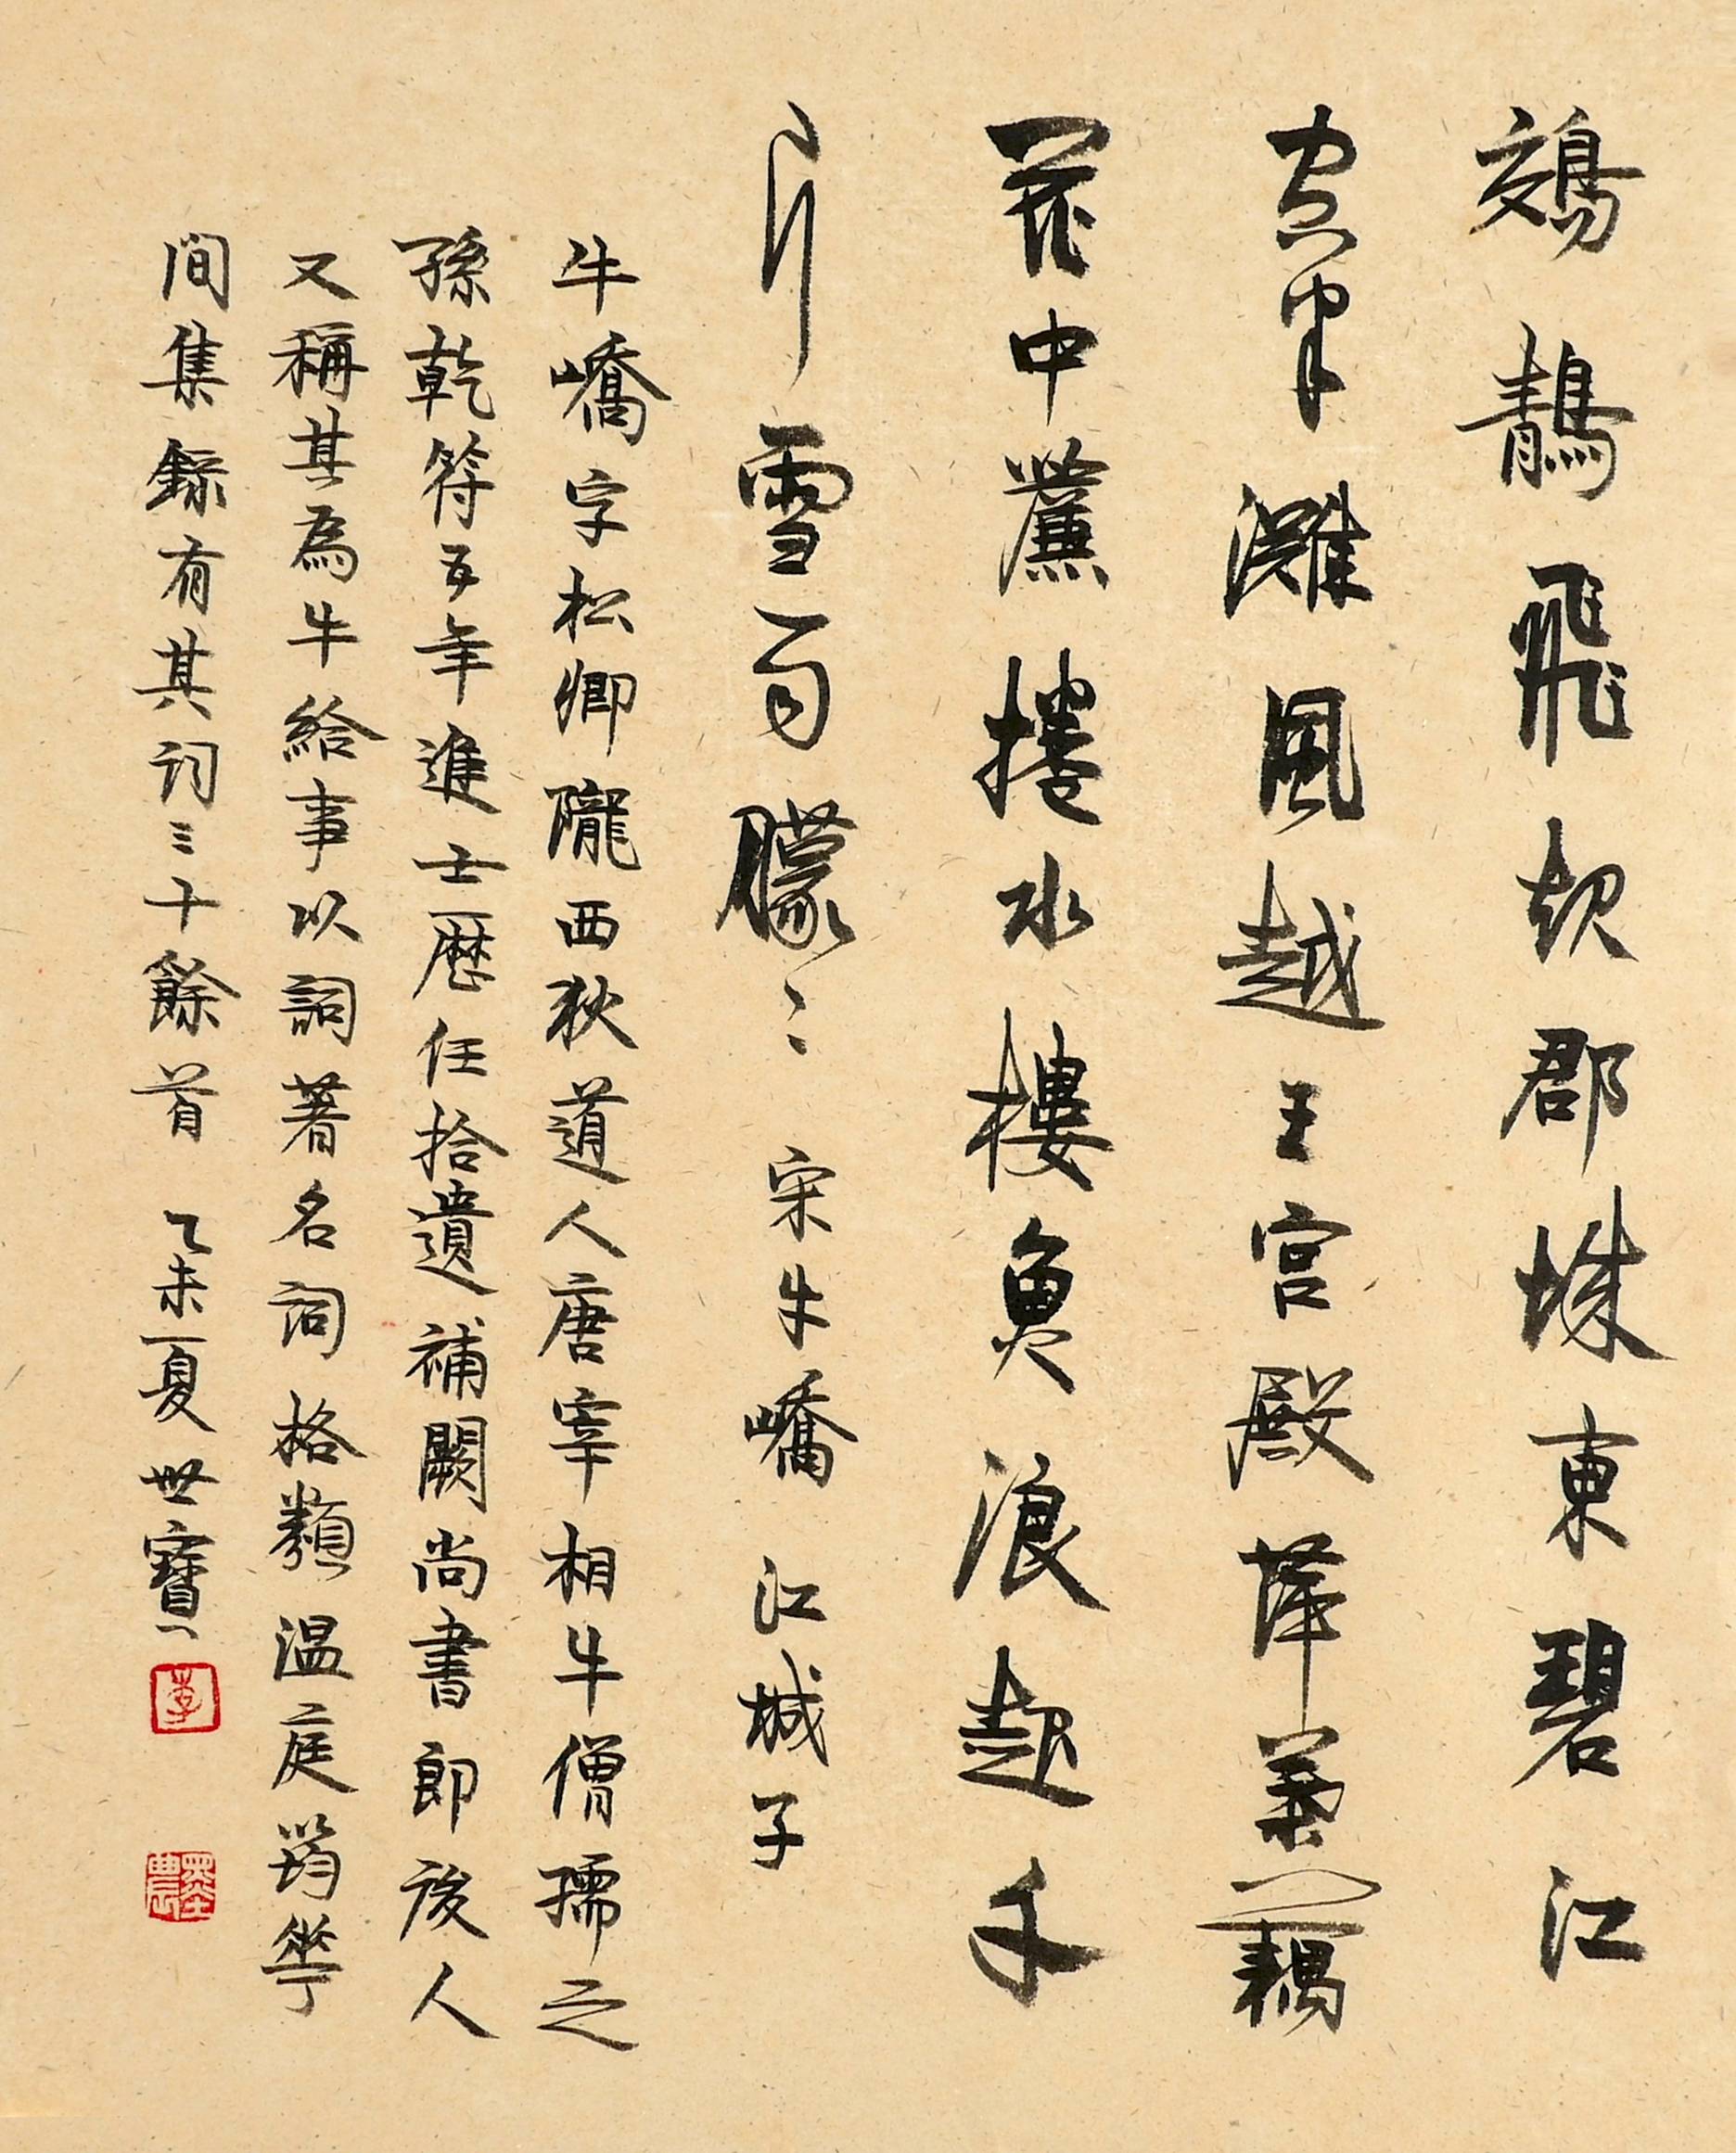 鵁鶄飛起郡城東碧江
空半灘風越王宮殿葉藕
花中簾捲水樓魚浪起千
片雪雨朦〻 宋牛嶠 江城子
牛嶠字松卿隴西狄道人唐宰相牛僧孺之
孫乾符五年進士歷任拾遺補闕尚書郎後人
又稱其為牛給事以詞著名詞格類溫庭筠華
間集錄有其詞三十餘首 乙未夏世寶
李
墨農